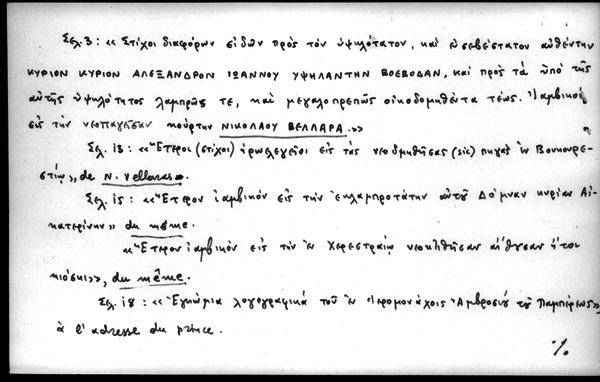 Σελ. 3 : «Στίχοι διαφόρων εἰδῶν πρὸς τὸν ὑψηλότατον, καὶ εὐσεβέστατον αὐθέντην
ΚΥΡΙΟΝ ΚΥΡΙΟΝ ΑΛΕΞΑΝΔΡΟΝ ΙΩΑΝΝΟΥ ΥΨΗΛΑΝΤΗΝ ΒΟΕΒΟΔΑΝ, καὶ πρὸς τὰ ὑπὸ τῆς
αὐτῆς ὑψηλότητος λαμπρῶς τε, καὶ μεγαλοπρεπῶς οἰκοδομηθέντα τέως. Ἰαμβικοὶ
εἰς τὴν νεοπαγεῖσαν κούρτην ΝΙΚΟΛΑΟΥ ΒΕΛΛΑΡΑ.»
Σελ. 13 : «Ἕτεροι (στίχοι) ἡρωελεγεῖοι εἰς τὰς νεοδμηθήσας (sic) πηγὰς ἐν Βουκουρε-
στίῳ», de N. Vellaras.
Σελ. 15 : «Ἕτερον ἰαμβικὸν εἰς τὴν ἐκλαμπροτάτην αὐτοῦ Δόμναν κυρίαν Αἰ-
κατερίνην» du même.
«Ἕτερον ἰαμβικὸν εἰς τὴν ἐν Χερεστραίῳ νεοκτισθῆσαν αἴθουσαν ἤτοι
κιόσκι», du même.
Σελ. 18 : «Ἐγκώμια λογογραφικὰ τοῦ ἐν Ἱερομονάχοις Ἀμβροσίου τοῦ Παμπέρεως»
à l'adresse du prince.
·/.